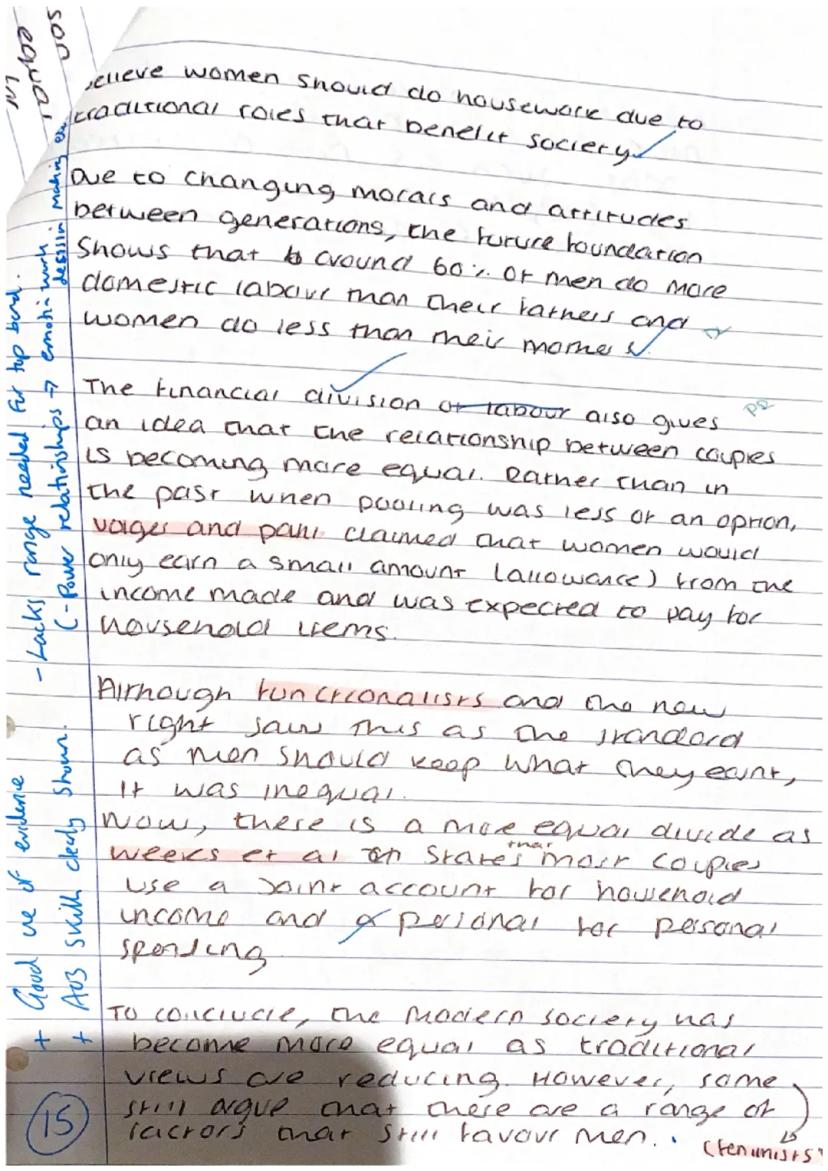 believe women should do housework due to
traditional roles that benefit society.
Due to changing morals and attitudes
between generations, the future foundation
shows that around 60% of men do more
domestic labour than their fathers and
women do less than their mothers.
The financial division of labour also gives
PR
an idea that the relationship between couples
is becoming more equal. Rather than in
the past when pooling was less of an option,
volger and pahl claimed that women would
only earn a small amount (allowance) from the
income made and was expected to pay for
household items.
Although functionalists and the new
right saw this as the standard
as men should keep what they earnt,
it was inequal.
Now, there is a more equal divide as
weeks et al states that most couples
use a joint account for household
income and personal for personal
spending
To conclude, the modern society has
become more equal as traditional
views are reducing. However, some
still argue that there are a range of
factors that still favour men.
(feminists)
15
+ Good use of evidence
+ A03 skills clearly shown.
- Lacks range needed for top band.
(- Power relationships → emotion work